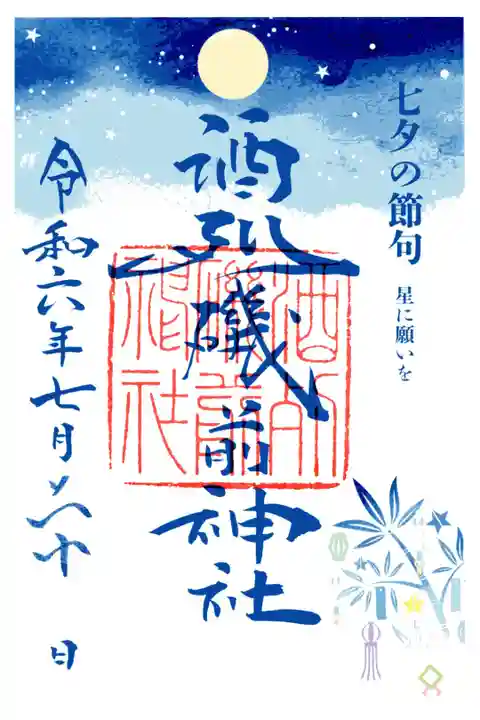 七夕の節句
星に願いを
酒列磯前神社
酒列
磯前
神社
令和六年七月 日